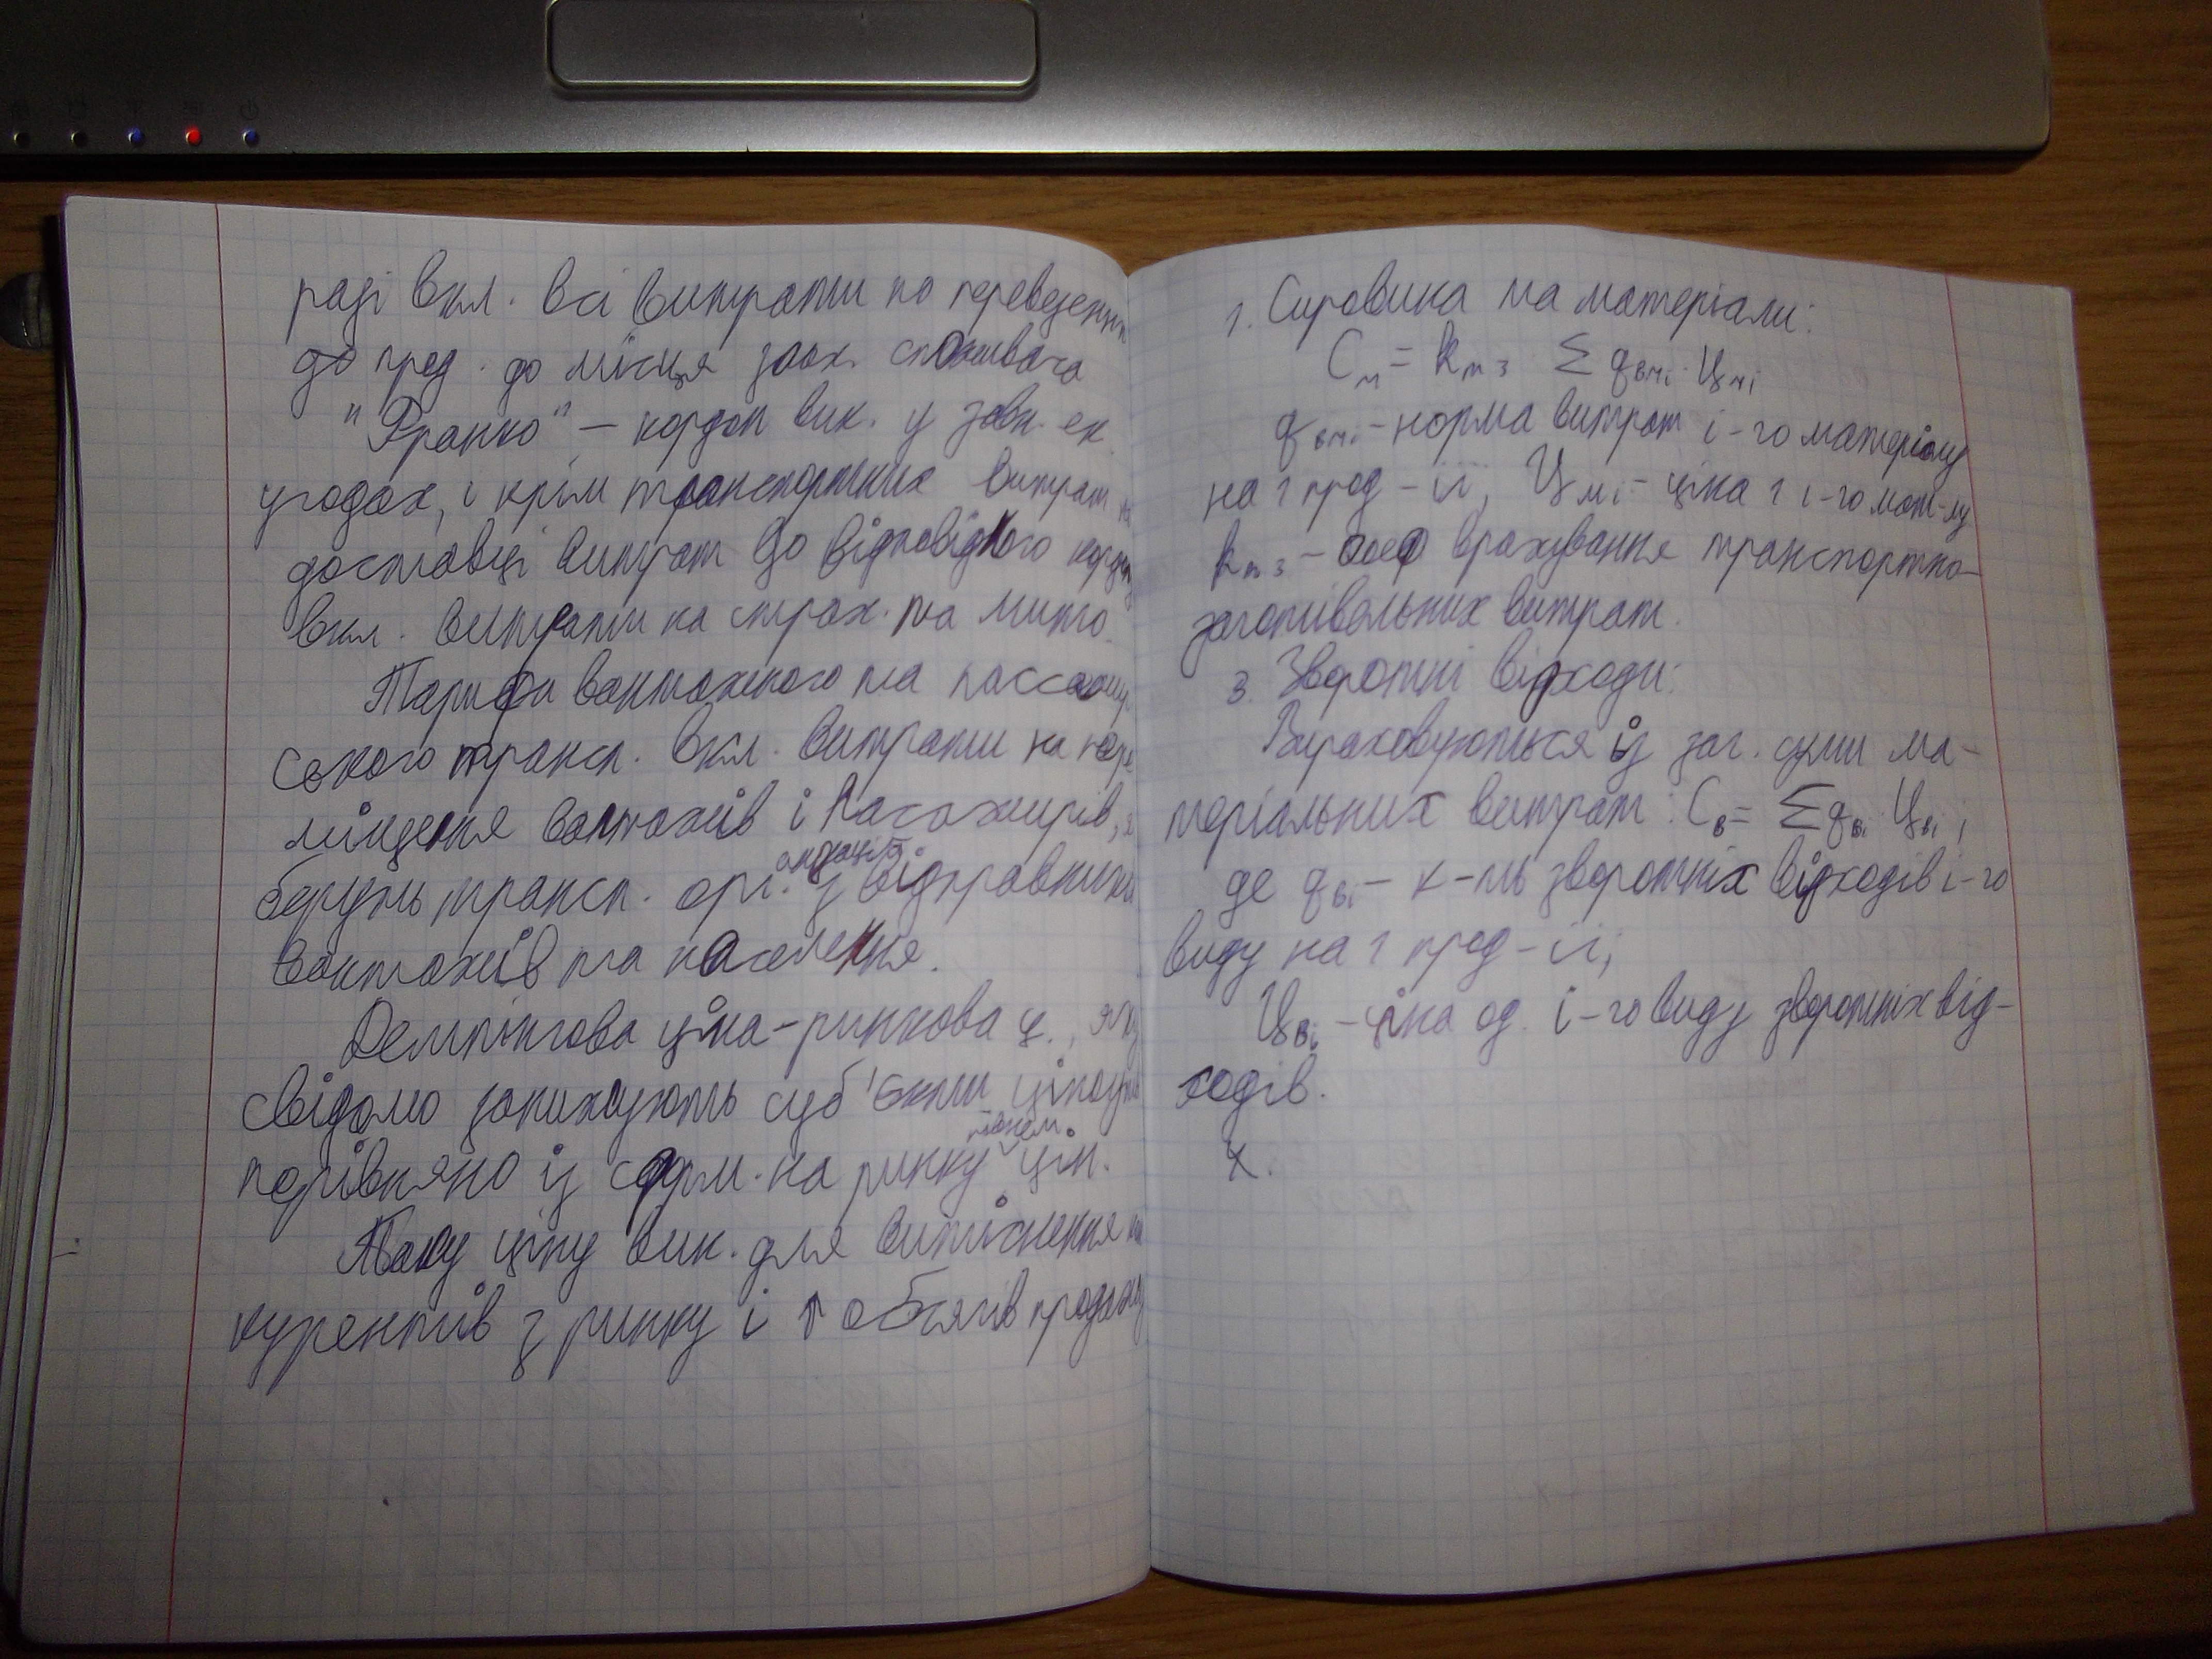 раді вкл. всі витрати по переведенню
до пред. до місця знах. споживача
"Франко" – кордон вик. у зовн. ек.
угодах, і крім транспортних витрат на
доставці витрат до відповідного кордону
вкл. витрати на страх. та мито.
Тарифи вантажного та пассажир
ського трансп. вкл. витрати на пере
міщення вантажів і пасажирів, я
беруть трансп. орг. з відправники
вантажів та населення.
Демпінгова ціна – ринкова ц., яку
свідомо занижують суб'єкти ціноутв
рівнем
порівняно із сформ. на ринку цін.
Таку ціну вик. для витіснення кон
курентів з ринку і ↑ обсягів продажу
1. Сировина та матеріали:
Cм = kтз Σ qвмі · Цмі
qвмі – норма витрат і-го матеріалу
на 1 прод-ії, Цмі – ціна 1 і-го мат-лу
kтз – врахування транспортно-
заготівельних витрат.
3. Зворотні відходи:
Вираховуються із заг. суми ма-
теріальних витрат: Cв = Σqві Цві,
де qві – к-ть зворотніх відходів і-го
виду на 1 пред-ії;
Цві – ціна од. і-го виду зворотніх від-
ходів.
4.